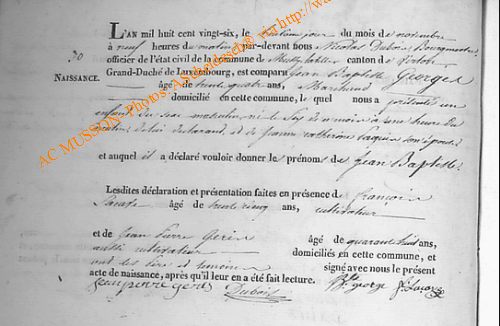 L'AN mil huit cent vingt-six, le jour du mois de novembre
à neuf heures du matin par-devant nous Nicolas Dubois Bourgmestre
30
officier de l'état civil de la commune de canton d'
NAISSANCE.
Grand-Duché de Luxembourg, est comparu jean Baptiste Georges
âgé de trente quatre ans, Marchand
domicilié en cette commune, le quel nous a présenté un
enfant du sexe masculin, né le six de ce mois à une heure du
matin de lui déclarant, et de jeanne catherine son épouse
et auquel il a déclaré vouloir donner les prénoms de jean Baptiste.
Lesdites déclaration et présentation faites en présence de françois
âgé de trente cinq ans, cultivateur
et de Jean Pierre âgé de quarante huit ans,
aussi cultivateur domiciliés en cette commune, et
ont les père et témoins signé avec nous le présent
acte de naissance, après qu'il leur en a été fait lecture.
jean pierre Dubois george
AC MUSSON- Photos: via http://